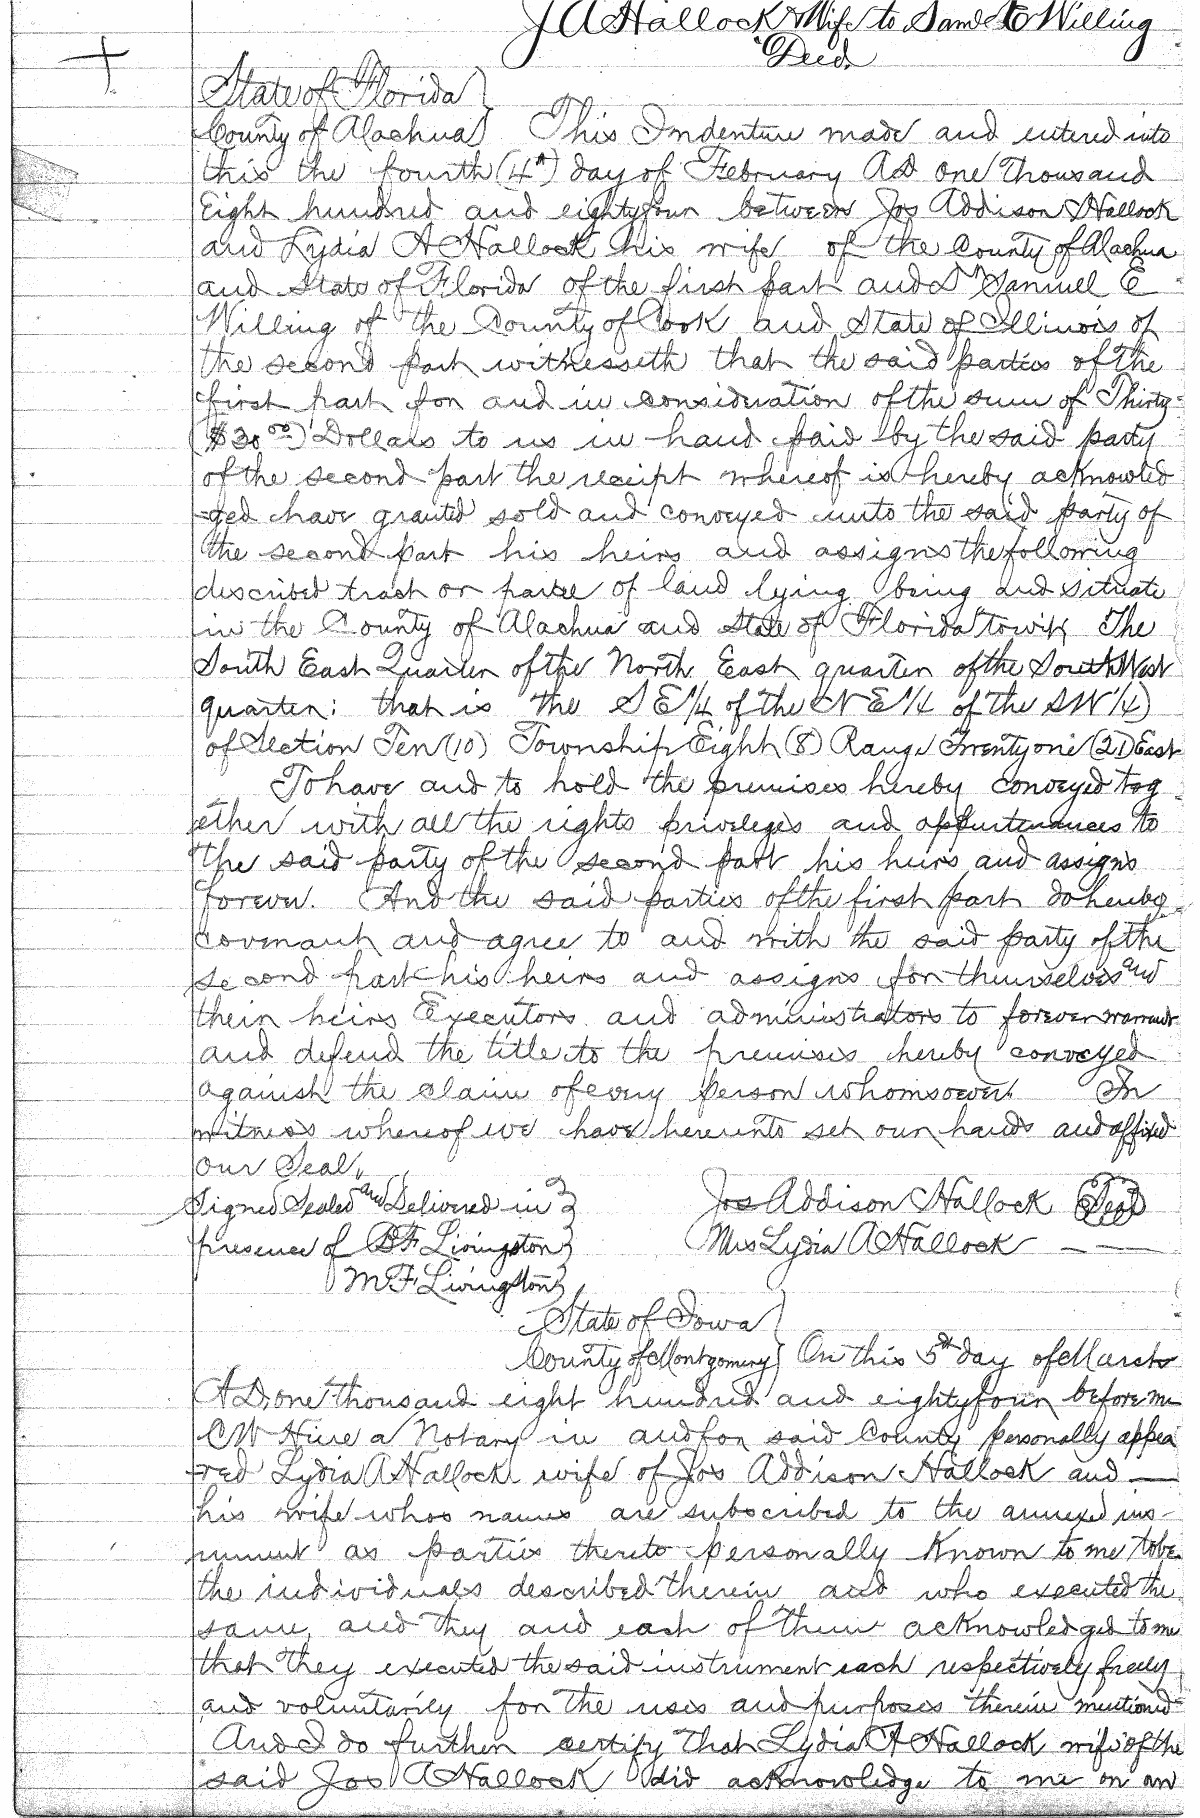 J A Hallock & Wife to Saml E Willing
Deed
State of Florida
County of Alachua This Indenture made and entered into
this the fourth (4th) day of February AD one Thousand
Eight hundred and eightyfour between Jos Addison Hallock
and Lydia A Hallock his wife of the County of Alachua
and State of Florida of the first part and Dr Samuel E
Willing of the County of Cook and State of Illinois of
the second part witnesseth that the said parties of the
first part for and in consideration of the sum of Thirty
($30 00) Dollars to us in hand paid by the said party
of the second part the receipt whereof is hereby acknowled
-ged have granted sold and conveyed unto the said party of
the second part his heirs and assigns the following
described tract or parcel of land lying being and situate
in the County of Alachua and State of Florida towit, The
South East Quarter of the North East quarter of the South West
quarter; that is the S E 1/4 of the N E 1/4 of the SW 1/4)
of Section Ten (10) Township Eight (8) Range Twenty one (21) East
To have and to hold the premises hereby conveyed tog
ether with all the rights privileges and appurtenances to
the said party of the second part his heirs and assigns
forever. And the said parties of the first part do hereby
covenant and agree to and with the said party of the
second part his heirs and assigns for themselves and
their heirs Executors and administrators to forever warrant
and defend the title to the premises hereby conveyed
against the claim of every person whomsoever. In
witness whereof we have hereunto set our hands and affixed
our Seal,
Signed Sealed and Delivered in Jos Addison Hallock Seal
presence of B F Livingston Mrs Lydia A Hallock
M F Livingston
State of Iowa
County of Montgomery On this 5th day of March
AD one thousand eight hundred and eightyfour before me
C W Hine a Notary in and for said County personally appea
-red Lydia A Hallock wife of Jos Addison Hallock and —
his wife whos names are subscribed to the annexed ins-
rument as parties thereto personally Known to me to be
the individuals described therein and who executed the
same, and they and each of them acknowledged to me
that they executed the said instrument each respectively freely
and voluntarily for the uses and purposes therein mentioned
And I do further certify that Lydia A Hallock wife of the
said Jos A Hallock did acknowledge to me on an